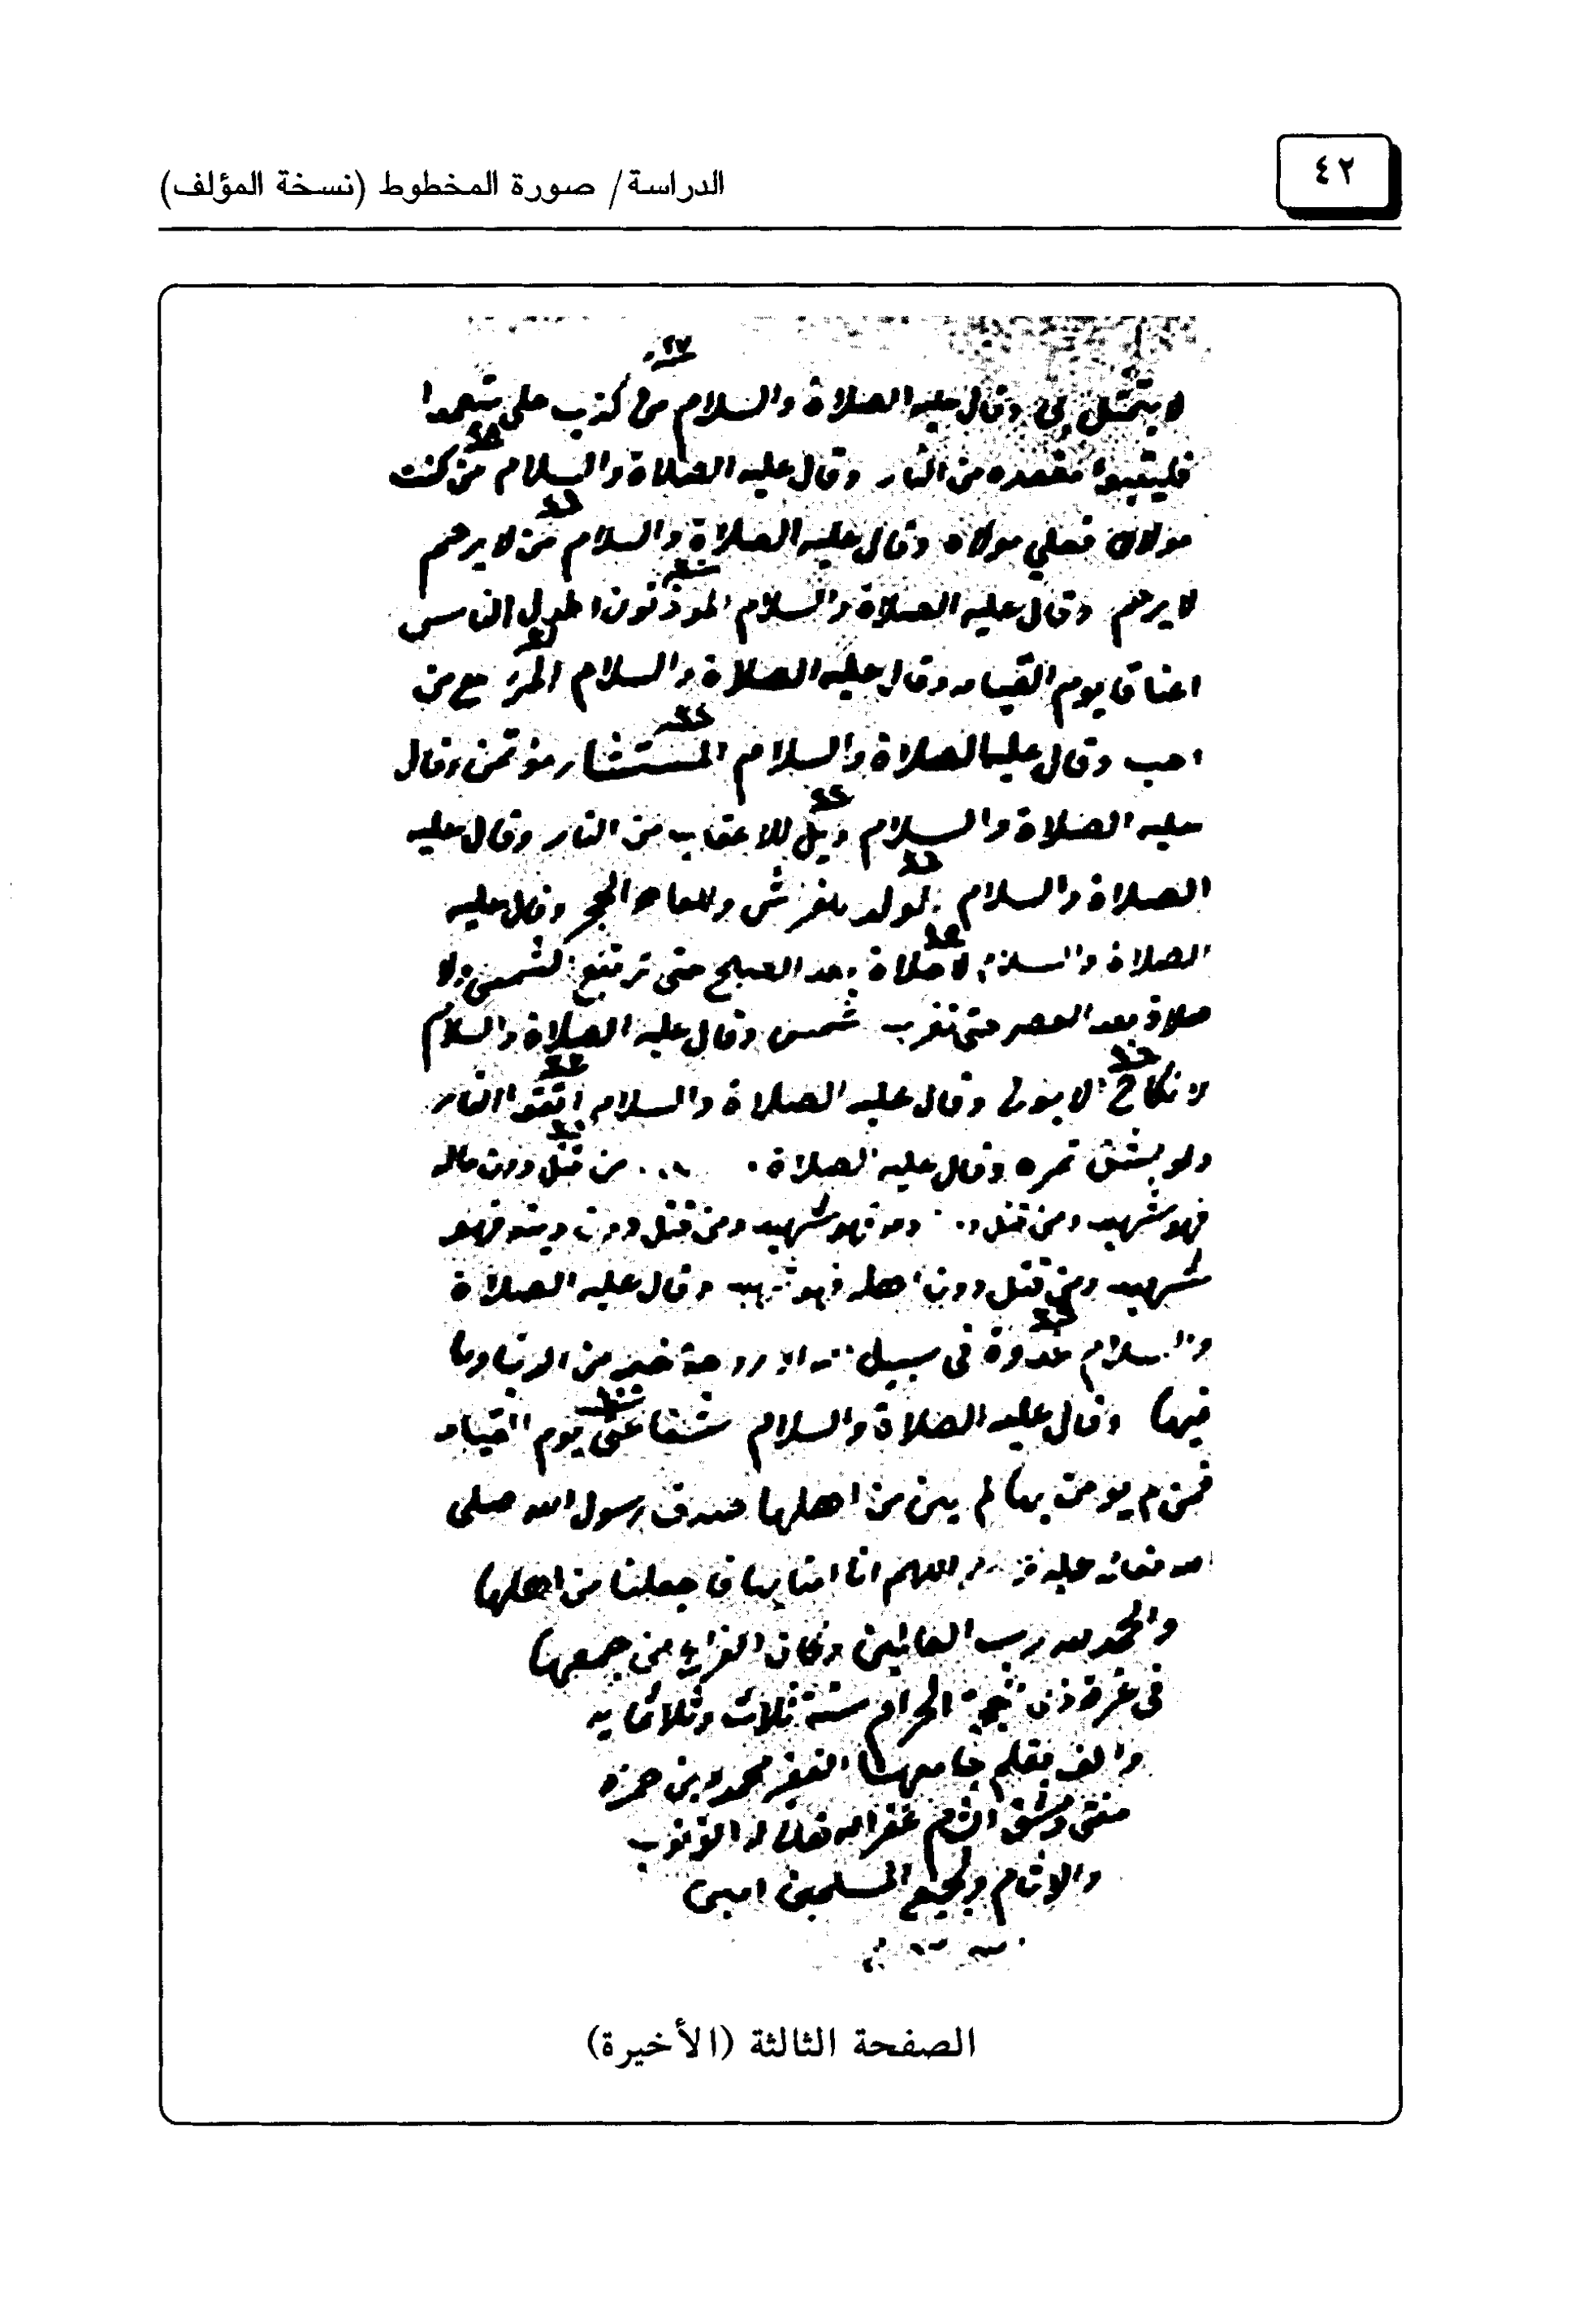 ٤٢
الدراسة/ صورة المخطوط (نسخة المؤلف)
لا يتمثل بي وقال عليه الصلاة والسلام من كذب علي متعمدا
فليتبوا مقعده من النار وقال عليه الصلاة والسلام من كنت
مولاه فعلي مولاه وقال عليه الصلاة والسلام من لا يرحم
لا يرحم وقال عليه الصلاة والسلام الموذنون اطول الناس
اعناقا يوم القيامه وقال عليه الصلاة والسلام المرء مع من
احب وقال عليه الصلاة والسلام المستشار موتمن وقال
عليه الصلاة والسلام ويل للاعقاب من النار وقال عليه
الصلاة والسلام الولد للفرش وللعاهر الحجر وقال عليه
الصلاة والسلام لا صلاة بعد الصبح حتى ترتفع الشمس ولا
صلاة بعد العصر حتى تغرب شمس وقال عليه الصلاة والسلام
لا نكاح الا بولي وقال عليه الصلاة والسلام اتقوا النار
ولو بشق تمره وقال عليه الصلاة من قتل دون ماله
فهو شهيد ومن قتل دمه فهو شهيد ومن قتل دون دينه فهو
شهيد ومن قتل دون اهله فهو شهيد وقال عليه الصلاة
والسلام غدوة في سبيل الله او روحة خير من الدنيا وما
فيها وقال عليه الصلاة والسلام شفاعتي يوم القيامه
فمن لم يومن بها لم يكن من اهلها صدق رسول الله صلى
الله تعالى عليه اللهم انا امنا بها فاجعلنا من اهلها
والحمد لله رب العالمين وكان الفراغ من جمعها
في غرة ذي الحجة الحرام سنة ثلاث وثلاثمايه
والف بقلم جامعها الفقير محمود بن حمزه
مفتي دمشق الشام غفر الله تعالى له الذنوب
والاثام ولجميع المسلمين امين
الصفحة الثالثة (الأخيرة)